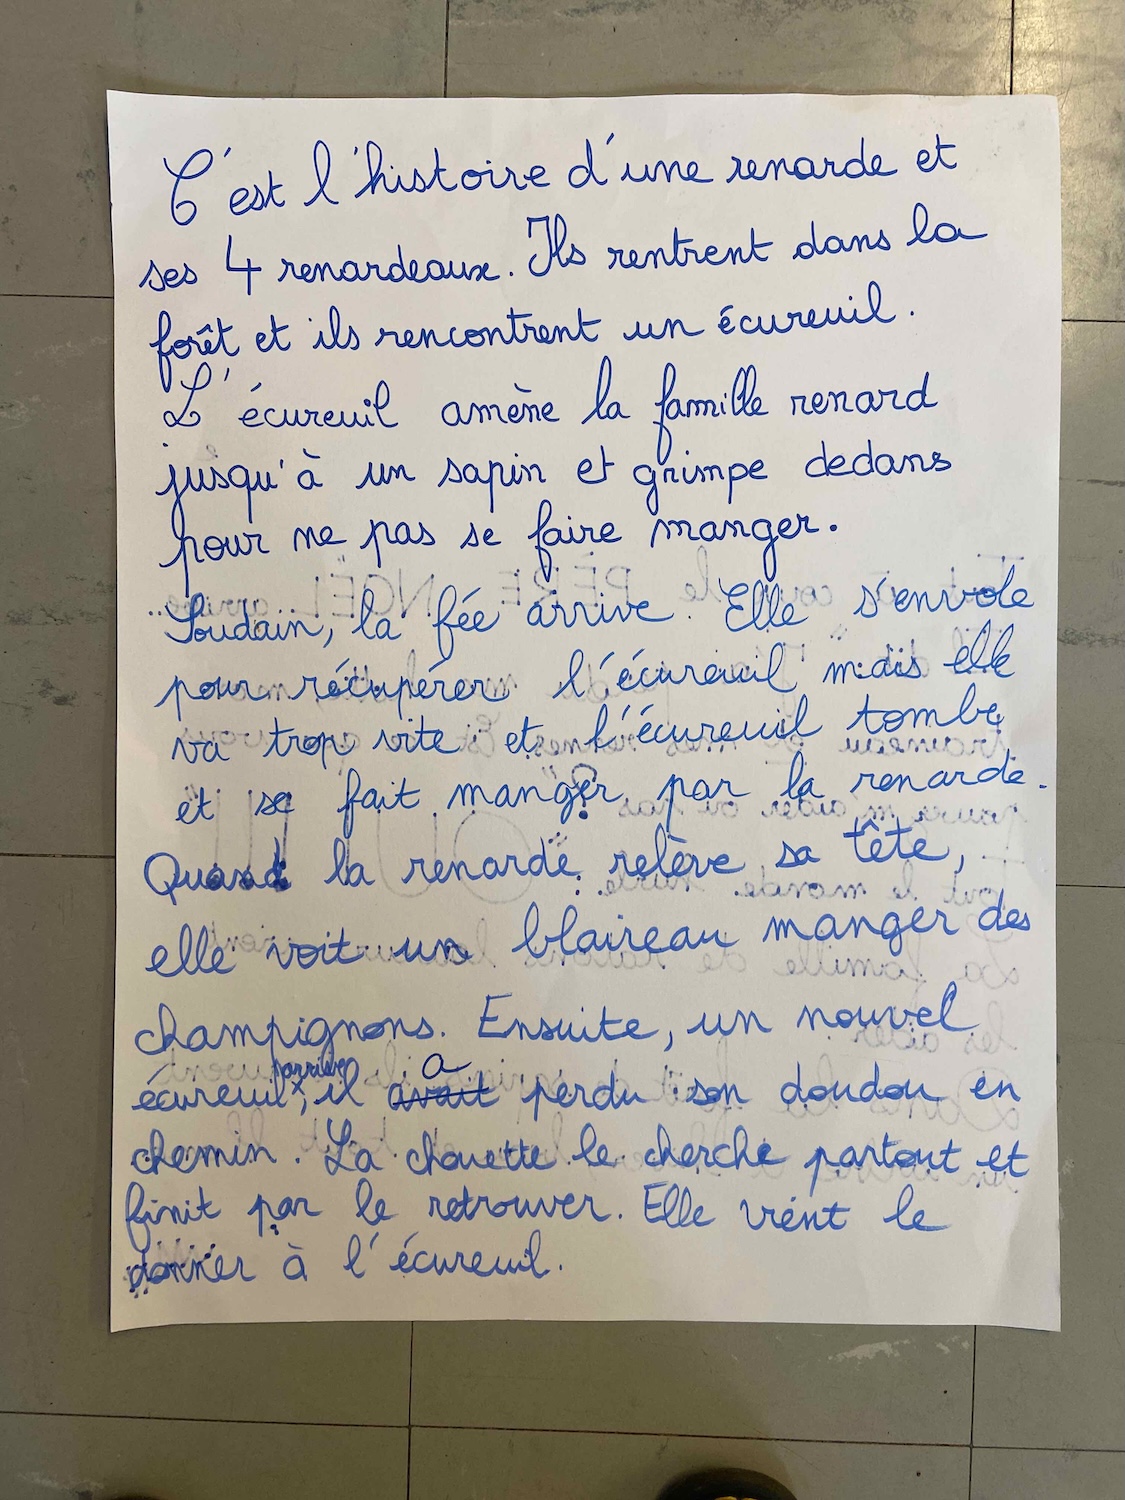 C'est l'histoire d'une renarde et
ses 4 renardeaux. Ils rentrent dans la
forêt et ils rencontrent un écureuil.
L'écureuil amène la famille renard
jusqu'à un sapin et grimpe dedans
pour ne pas se faire manger.
Soudain, la fée arrive. Elle s'envole
pour récupérer l'écureuil mais elle
va trop vite et l'écureuil tombe
et se fait manger par la renarde.
Quand la renarde relève sa tête,
elle voit un blaireau manger des
champignons. Ensuite, un nouvel
écureuil arrive, il avait a perdu son doudou en
chemin. La chouette le cherche partout et
finit par le retrouver. Elle vient le
donner à l'écureuil.